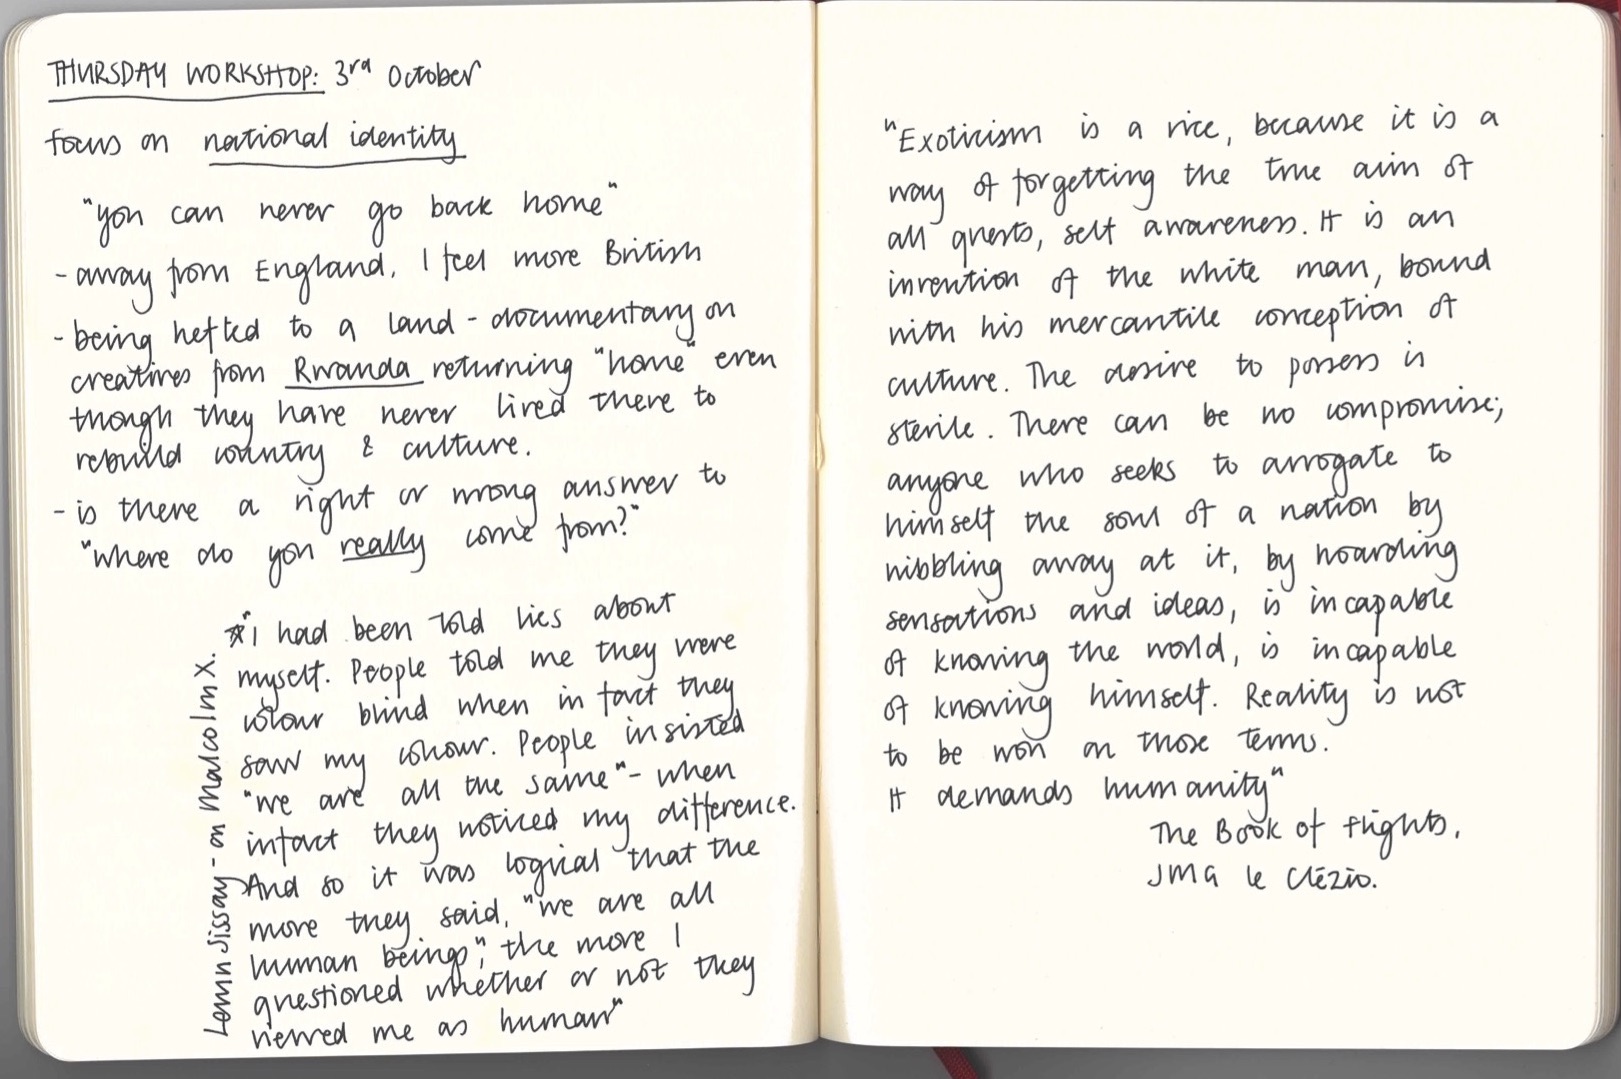 THURSDAY WORKSHOP: 3rd October
focus on national identity
"you can never go back home"
- away from England, I feel more British
- being hefted to a land - documentary on
creatives from Rwanda returning "home" even
though they have never lived there to
rebuild country & culture.
- is there a right or wrong answer to
"where do you really come from?"
*"I had been told lies about
myself. People told me they were
colour blind when in fact they
saw my colour. People insisted
"we are all the same" - when
infact they noticed my difference.
And so it was logical that the
more they said, "we are all
human beings", the more I
questioned whether or not they
viewed me as human"
Lemn Sissay - on Malcolm X.
"Exoticism is a vice, because it is a
way of forgetting the true aim of
all quests, self awareness. It is an
invention of the white man, bound
with his mercantile conception of
culture. The desire to possess is
sterile. There can be no compromise;
anyone who seeks to arrogate to
himself the soul of a nation by
nibbling away at it, by hoarding
sensations and ideas, is incapable
of knowing the world, is incapable
of knowing himself. Reality is not
to be won on those terms.
It demands humanity"
The Book of flights,
JMG le Clézio.